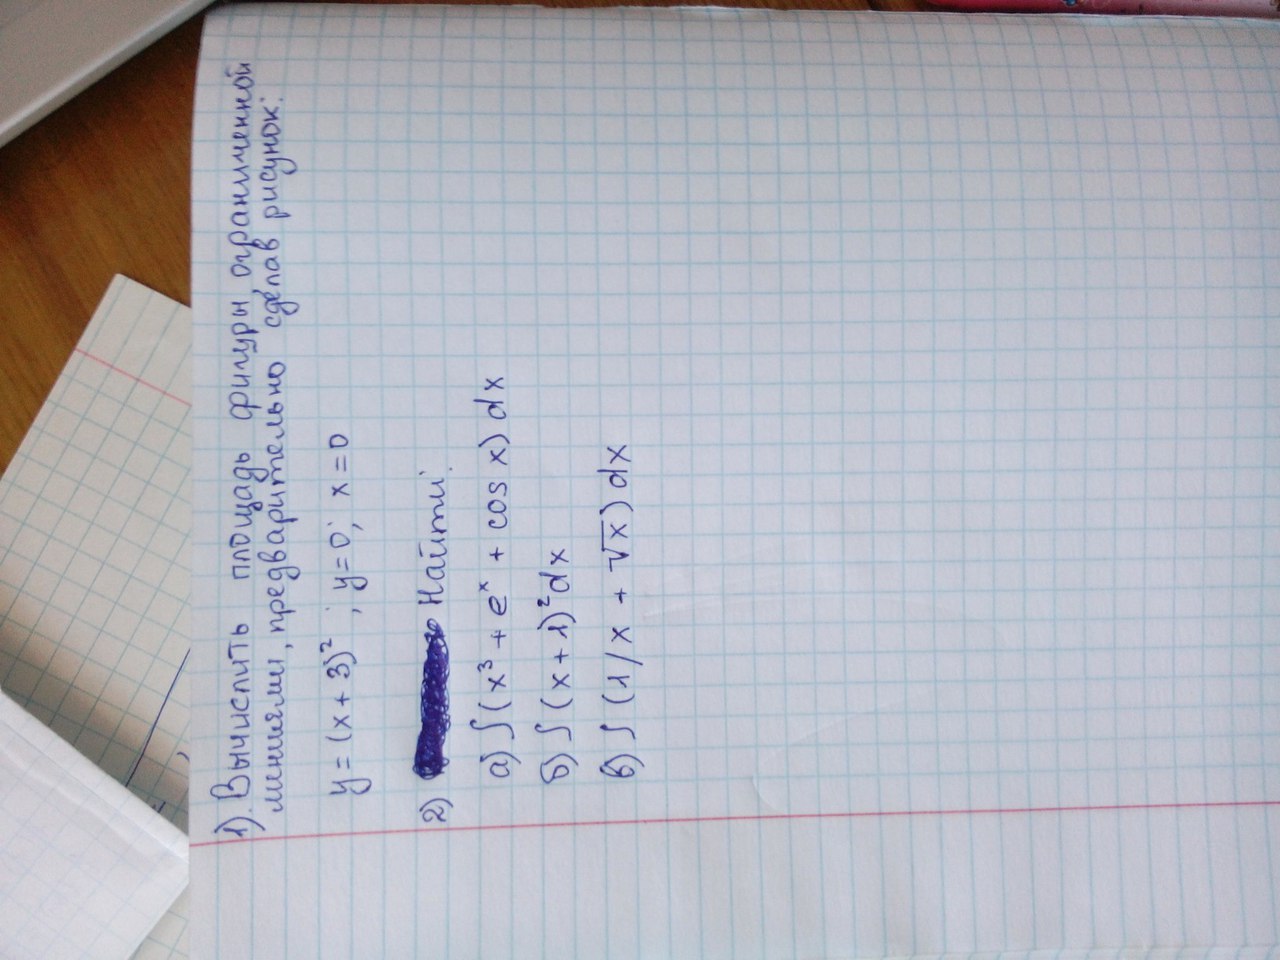 1). Вычислить площадь фигуры, ограниченной
линиями, предварительно сделав рисунок:
y = (x + 3)² ; y = 0; x = 0
2) Найти:
а) ∫ (x³ + eˣ + cos x) dx
б) ∫ (x + 1)² dx
в) ∫ (1/x + √x) dx